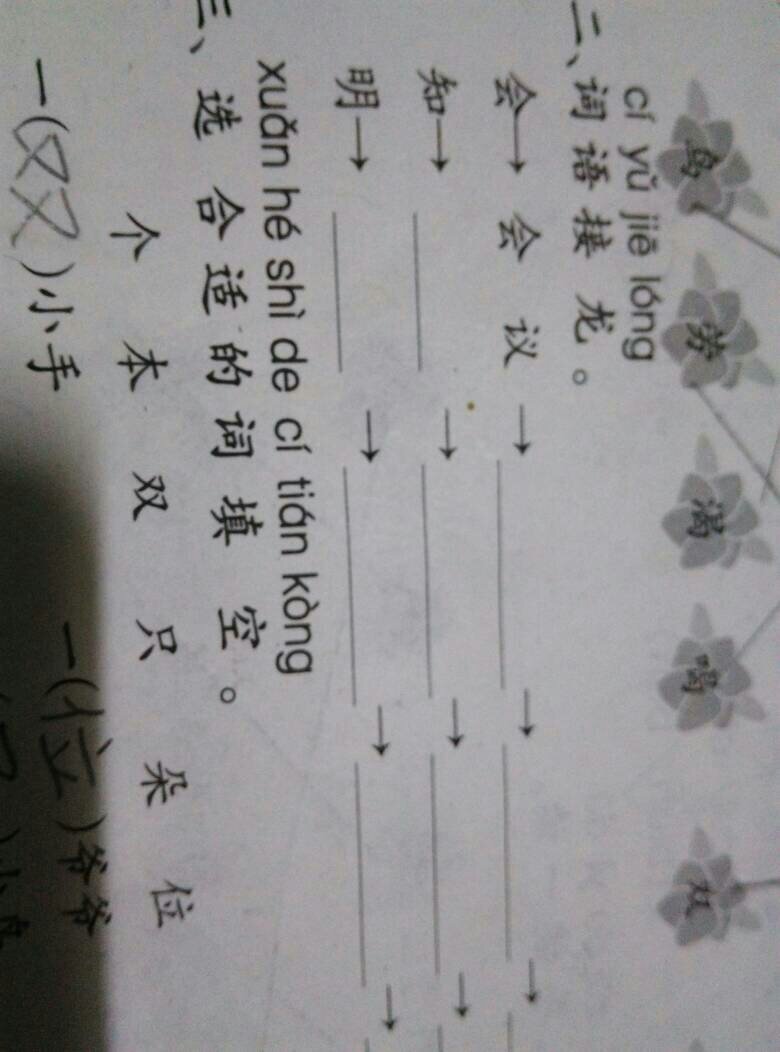 乌 劳 渴 喝 双
cí yǔ jiē lóng
二、词语接龙。
会→ 会议 → → →
知→ → → →
明→ → → →
xuǎn hé shì de cí tián kòng
三、选合适的词填空。
个 本 双 只 朵 位
一(双)小手 一(位)爷爷